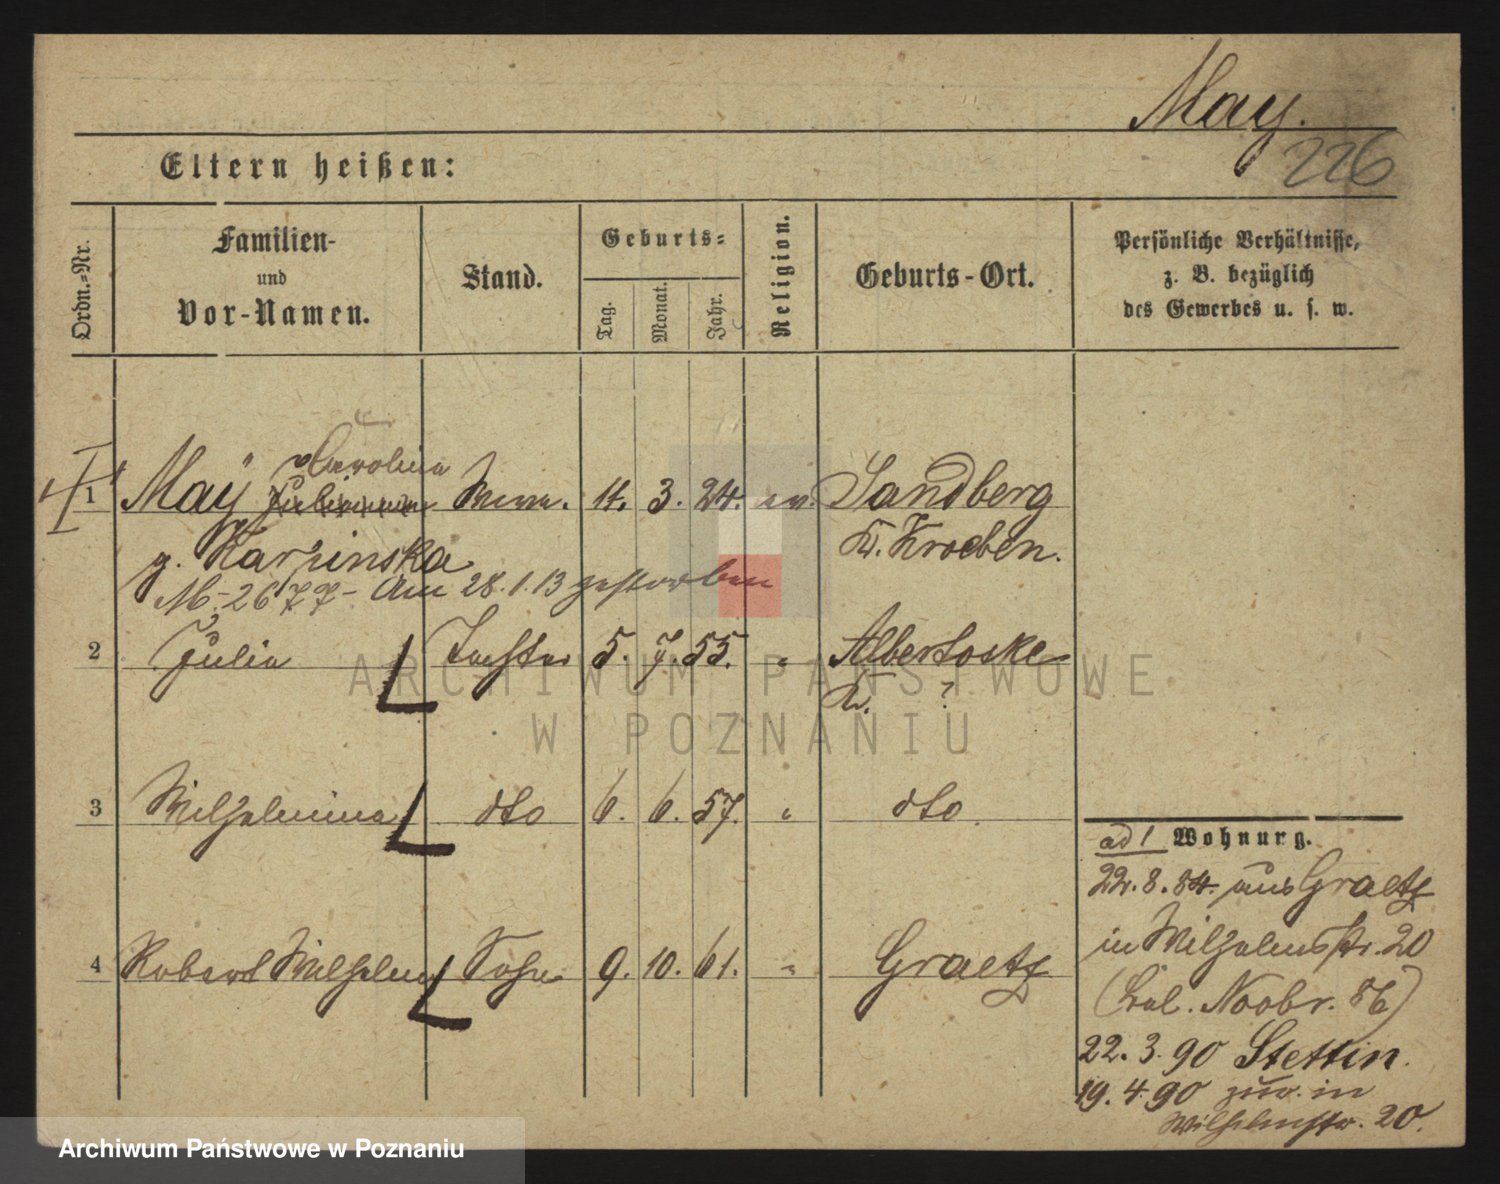 May.
226
Eltern heißen:
Ordn.-Nr.
Familien-
und
Vor-Namen.
Stand.
Geburts-
Tag.
Monat.
Jahr.
Religion.
Geburts-Ort.
Persönliche Verhältnisse,
z. B. bezüglich
des Gewerbes u. s. w.
Carolina
1 May Julianna Wwe. 14. 3. 24. ev. Sandberg
g. Karpinska Kr. Kroeben.
Am 28.1.13 gestorben
2 Julia Tochter 5. 7. 55. " Albertoske
Kr. ?
3 Wilhelmina dto 6. 6. 57. " dto.
4 Robert Wilhelm Sohn 9. 10. 61. " Graetz
ad 1 Wohnung.
22.8.84. aus Graetz
in Wilhelmsstr. 20
22.3.90 Stettin.
19.4.90 zur. in
Wilhelmstr. 20.
ARCHIWUM PAŃSTWOWE
W POZNANIU
Archiwum Państwowe w Poznaniu